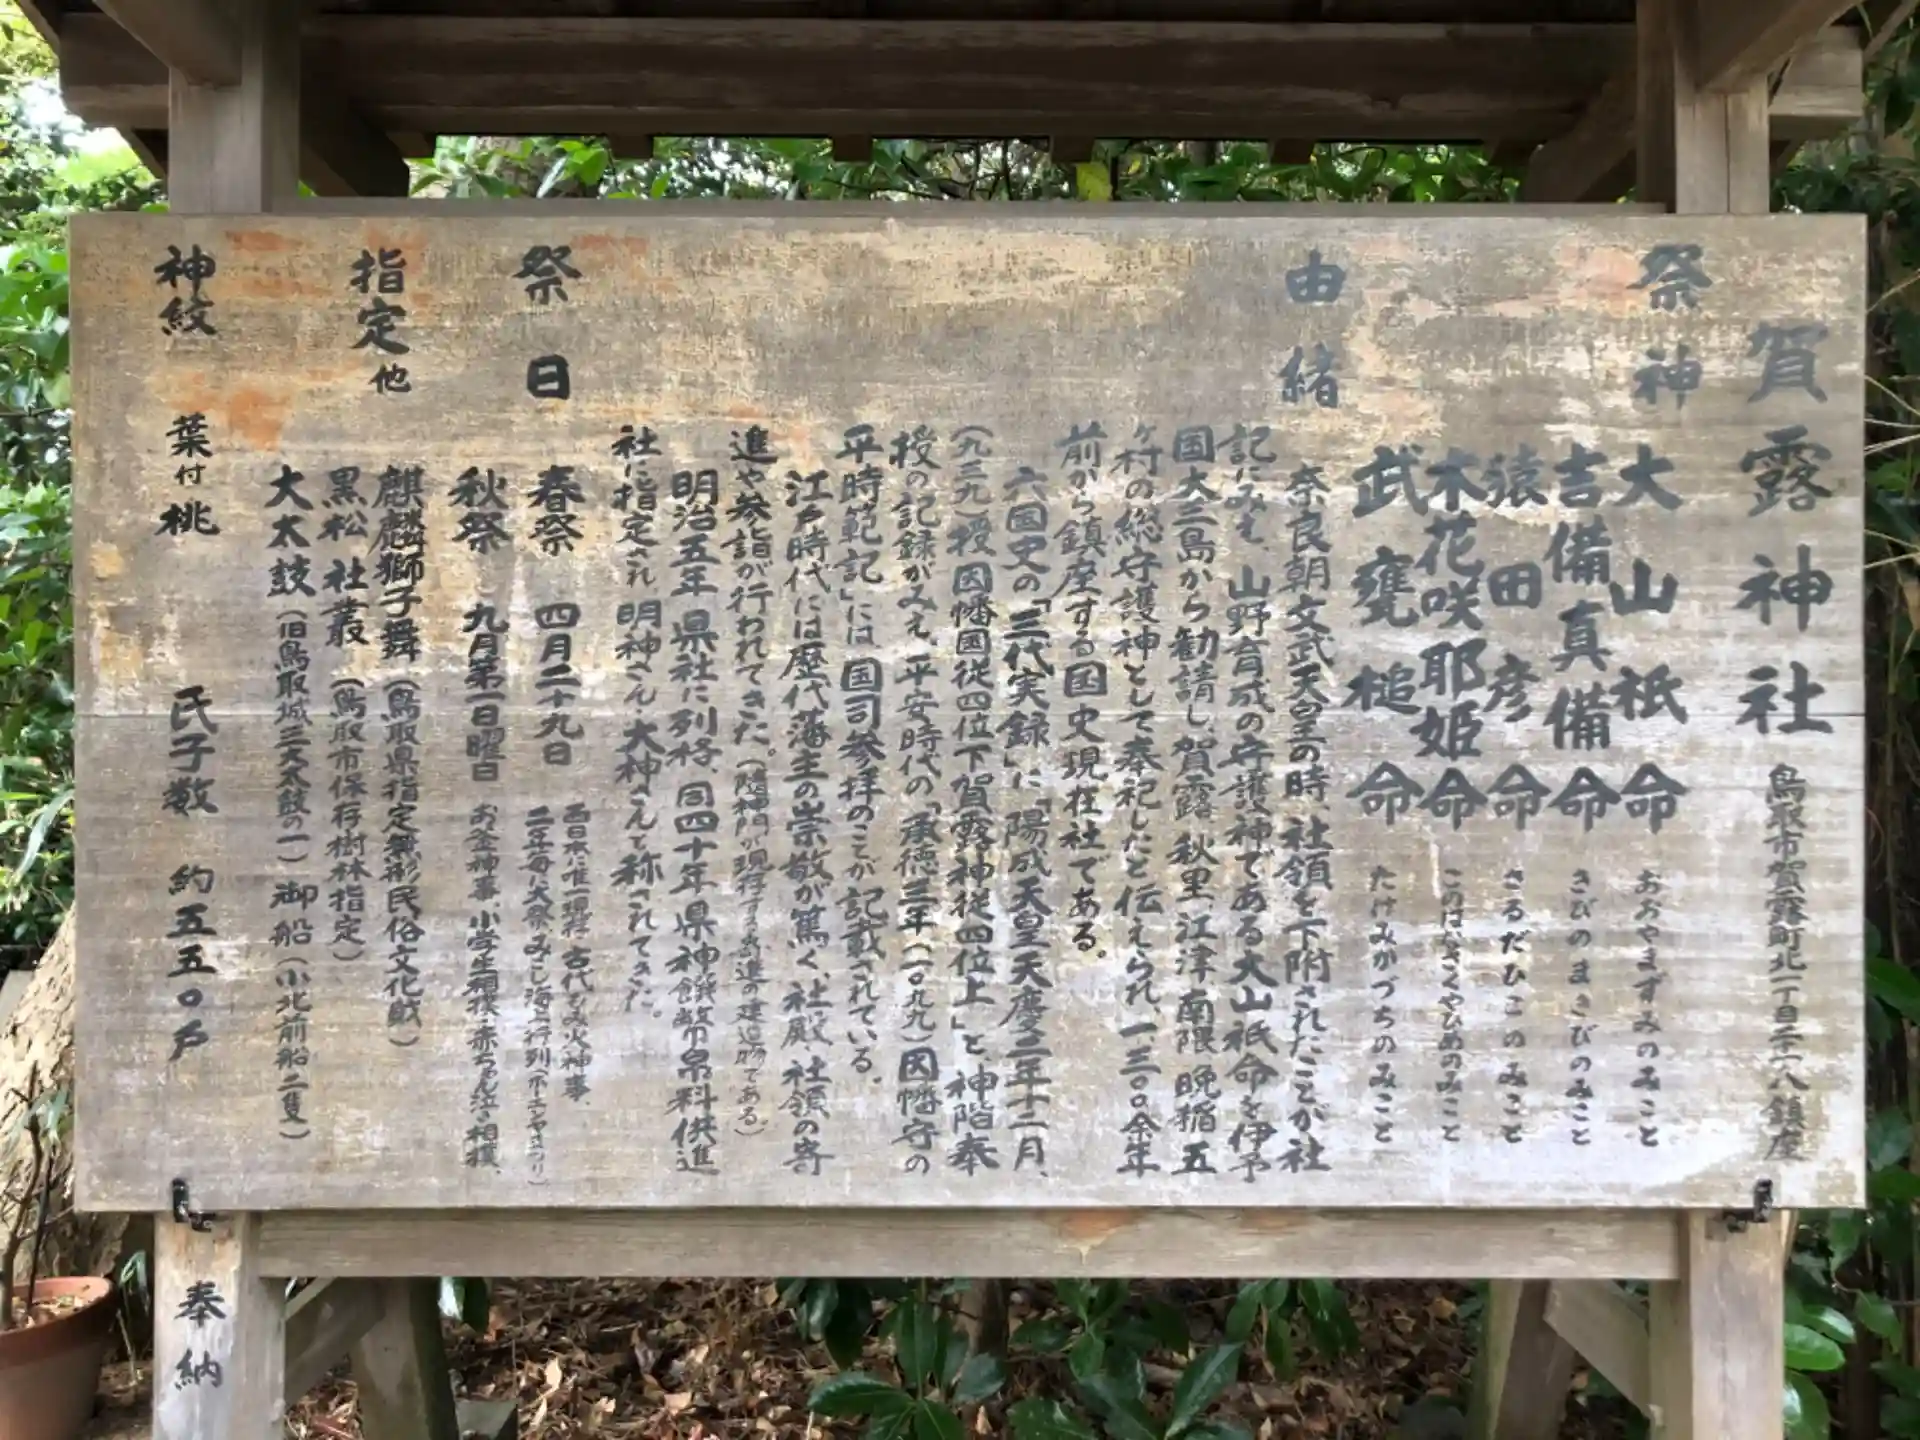 賀露神社 鳥取市賀露町北一丁目二十一八鎮座
祭神 大山祇命 おおやまずみのみこと
吉備真備命 きびのまきびのみこと
猿田彦命 さるだひこのみこと
木花咲耶姫命 このはなさくやひめのみこと
武甕槌命 たけみかづちのみこと
由緒
奈良朝文武天皇の時、社領を下附されたことが社
記にみえ、山野育成の守護神である大山祇命を伊予
国大三島から勧請し、賀露、秋里、江津、南隈、晩稲、五
ヶ村の総守護神として奉祀したと伝えられ、一、三〇〇余年
前から鎮座する国史現在社である。
六国史の「三代実録」に「陽成天皇天慶二年十二月、
(九三九)授因幡国従四位下賀露神従四位上」と神階奉
授の記録がみえ、平安時代の「承徳三年(一〇九九)因幡守の
平時範記」には国司参拝のことが記載されている。
江戸時代には歴代藩主の崇敬が篤く、社殿、社領の寄
進や参詣が行われてきた。(随神門が現存する寄進の建造物である)
明治五年県社に列格、同四十年県神饌幣帛料供進
社に指定され明神さん、大神さんと称されてきた。
祭日 春祭 四月二十九日 西日本に唯一現存、古代を偲ぶ火神事、
二年毎に大祭みこし海上行列(ホーエンヤまつり)
秋祭 九月第一日曜日 お釜神事、小学生相撲、赤ちゃん泣き相撲、
指定他 麒麟獅子舞(鳥取県指定無形民俗文化財)
黒松 社叢(鳥取市保存樹林指定)
大太鼓(旧鳥取城三大太鼓の一)御船(小北前船二隻)
神紋 葉付桃 氏子数 約五五〇戸
奉納